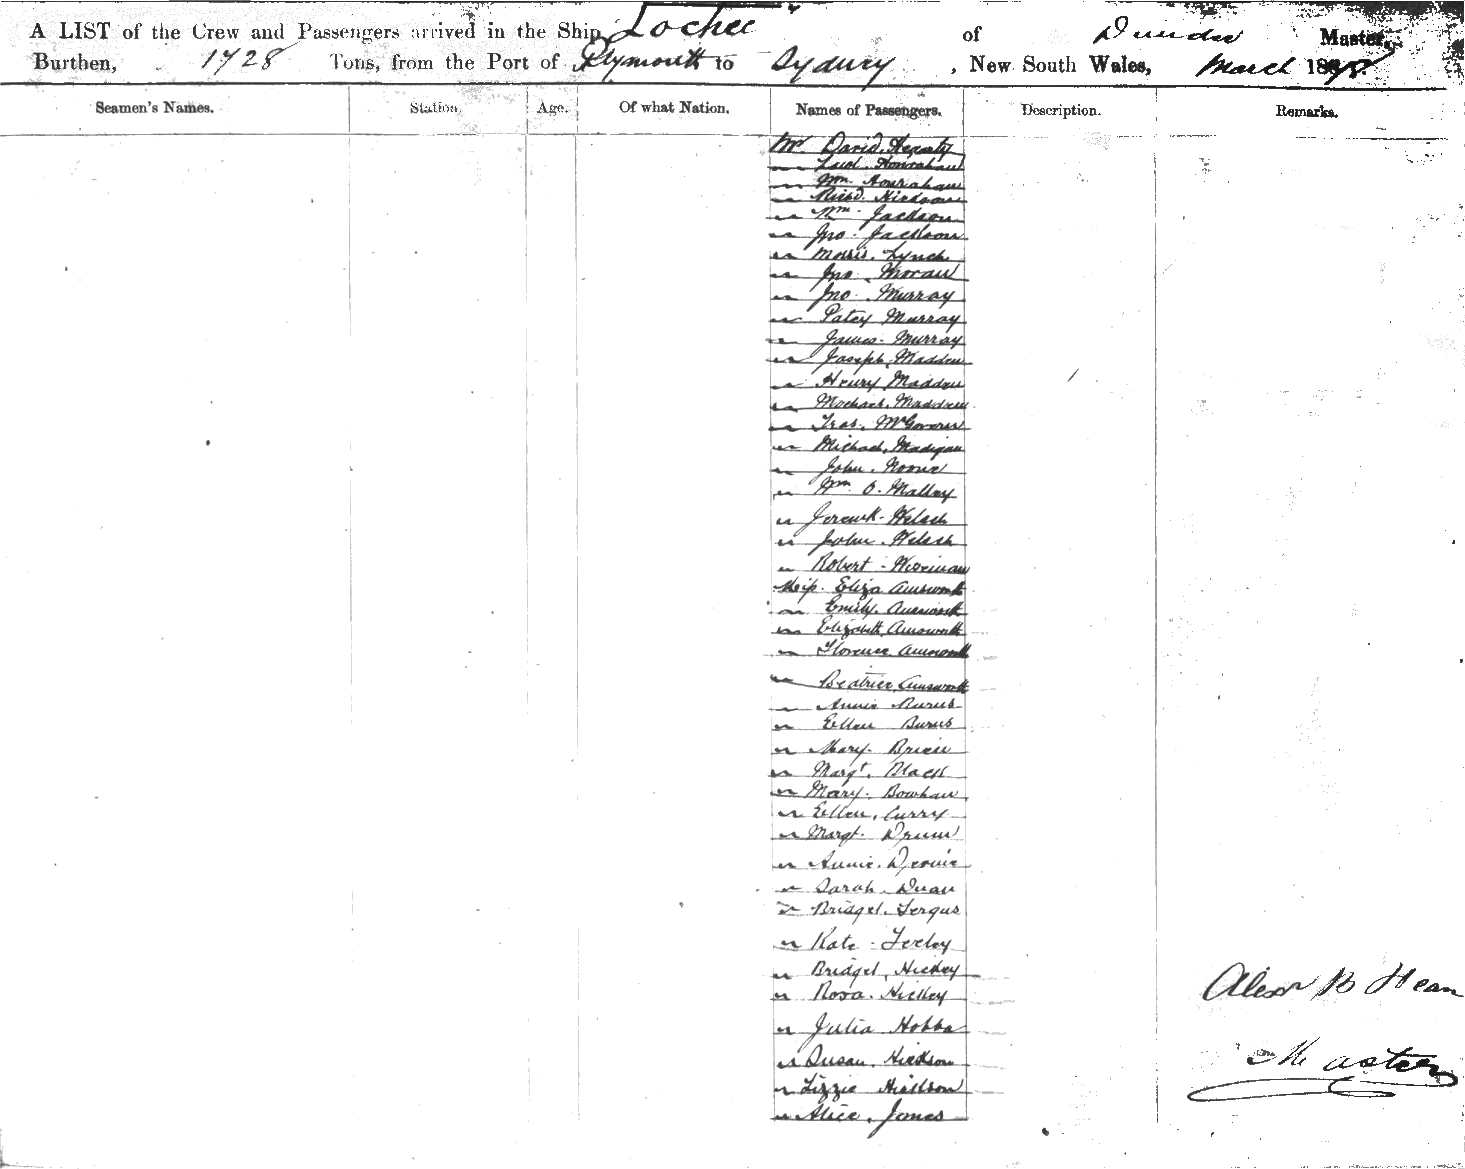 A LIST of the Crew and Passengers arrived in the Ship Lochee of Dundee Master,
Burthen, 1728 Tons, from the Port of Plymouth to Sydney, New South Wales, March 188
Seamen's Names. Station. Age. Of what Nation. Names of Passengers. Description. Remarks.
Mr David. Hegarty
" Hourahan
" Wm. Hourahan
" Richd.
" Wm. Jackson
" Jno. Jackson
" Morris. Lynch
" Jno. Moran
" Jno. Murray
" Patcy Murray
" James. Murray
" Joseph. Madden
" Henry Madden
" Madden
" McGovern
" Michael. Madigan
" John. Noone
" Wm. O. Malley
" Welsh
" John. Welsh
" Robert
Miss. Eliza Ainsworth
" Emily. Ainsworth
" Elizabeth. Ainsworth
" Florence. Ainsworth
" Beatrice. Ainsworth
" Annie Burns
" Ellen Burns
" Mary. Brien
" Margt. Black
" Mary. Bowhan
" Ellen. Curry
" Margt.
" Annie.
" Sarah.
" Bridget. Fergus
" Kate
" Bridget. Hickey
" Rosa. Hickey
" Julia Hobbs
" Susan.
" Lizzie
" Alice. Jones
Alexr B Hean
Master